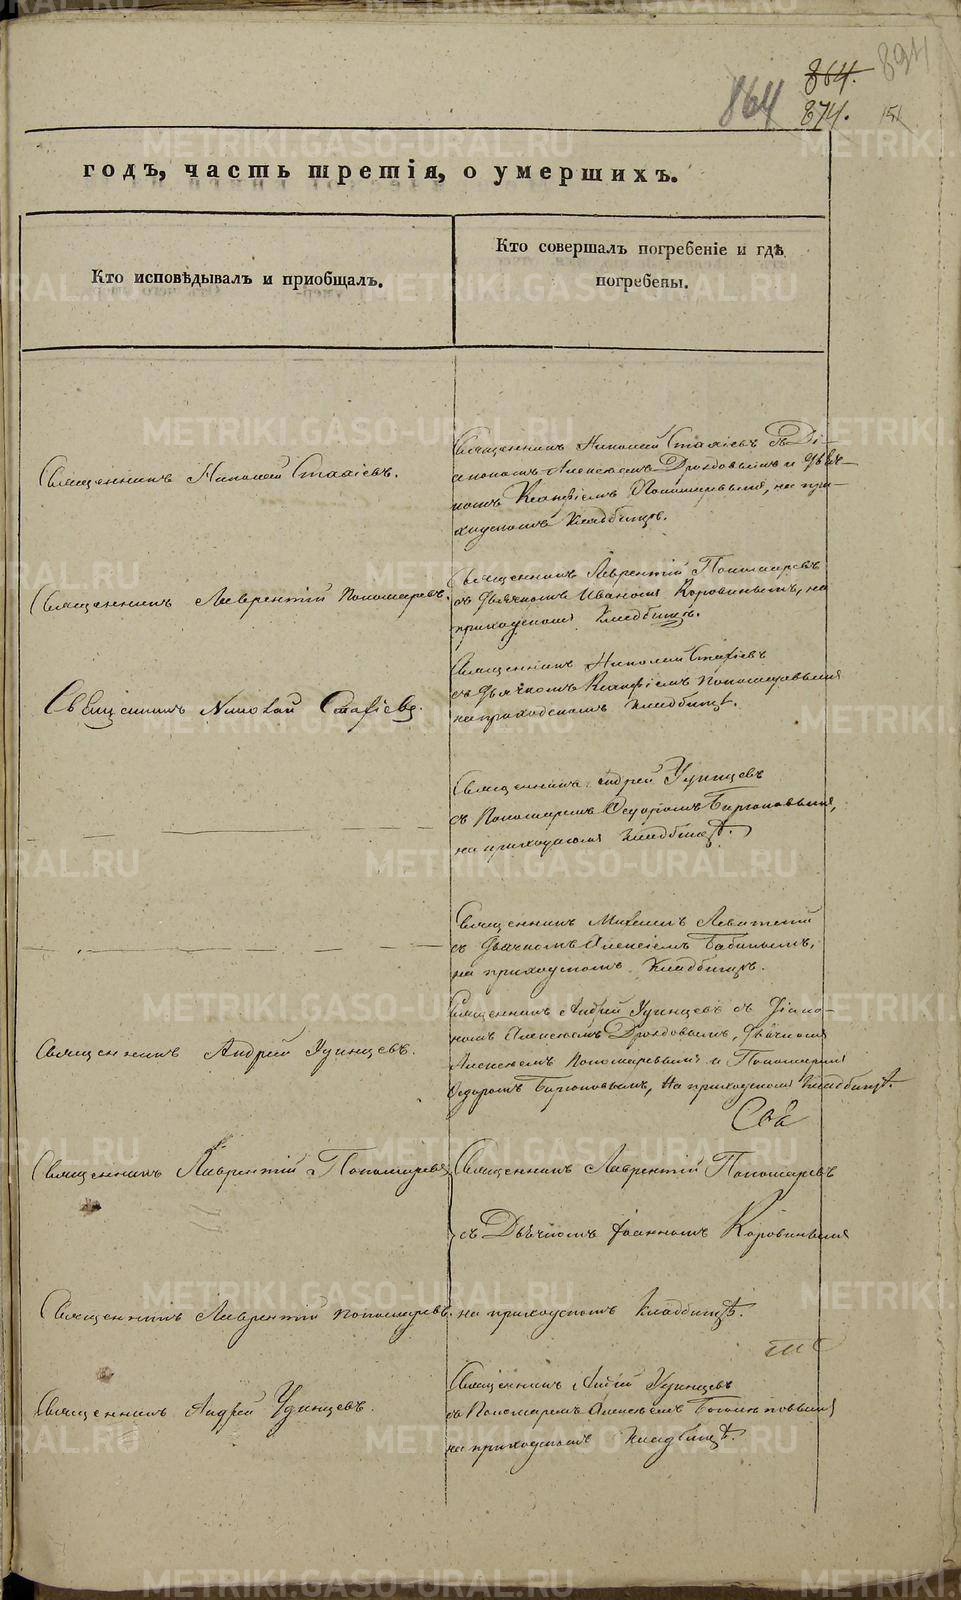 864.
864
874.
894
151
годъ, часть третія, о умершихъ.
Кто исповѣдывалъ и приобщалъ.
Кто совершалъ погребеніе и гдѣ
погребены.
Священникъ Николай Стахіевъ.
Священникъ Николай Стахіевъ съ Ді-
акономъ Алексіемъ Дроздовымъ и Дьяч-
комъ Пономаревымъ, на при-
ходскомъ кладбищѣ.
Священникъ Лаврентій Пономаревъ.
Священникъ Лаврентій Пономаревъ
съ Дьячкомъ Иваномъ Коровинымъ, на
приходскомъ кладбищѣ.
Священникъ Николай Стахіевъ.
Священникъ Николай Стахіевъ
съ Дьячкомъ Пономаревымъ
на приходскомъ кладбищѣ.
Священникъ Андрей Удинцевъ
съ Пономаремъ Ѳедоромъ Бирюковымъ,
на приходскомъ кладбищѣ.
Священникъ Михаилъ
съ Дьячкомъ Алексіемъ Бабинымъ,
на приходскомъ кладбищѣ.
Священникъ Андрей Удинцевъ.
Священникъ Андрей Удинцевъ съ Діако-
номъ Алексіемъ Дроздовымъ, Дьячкомъ
Алексіемъ Пономаревымъ и Пономаремъ
Ѳедоромъ Бирюковымъ, на приходскомъ кладбищѣ.
Священникъ Лаврентій Пономаревъ
Священникъ Лаврентій Пономаревъ
съ Дьячкомъ Іоанномъ Коровинымъ
Священникъ Лаврентій Пономаревъ.
на приходскомъ кладбищѣ.
Священникъ Андрей Удинцевъ.
Священникъ Андрей Удинцевъ
съ Пономаремъ Алексіемъ
на приходскомъ кладбищѣ.
METRIKI.GASO-URAL.RU